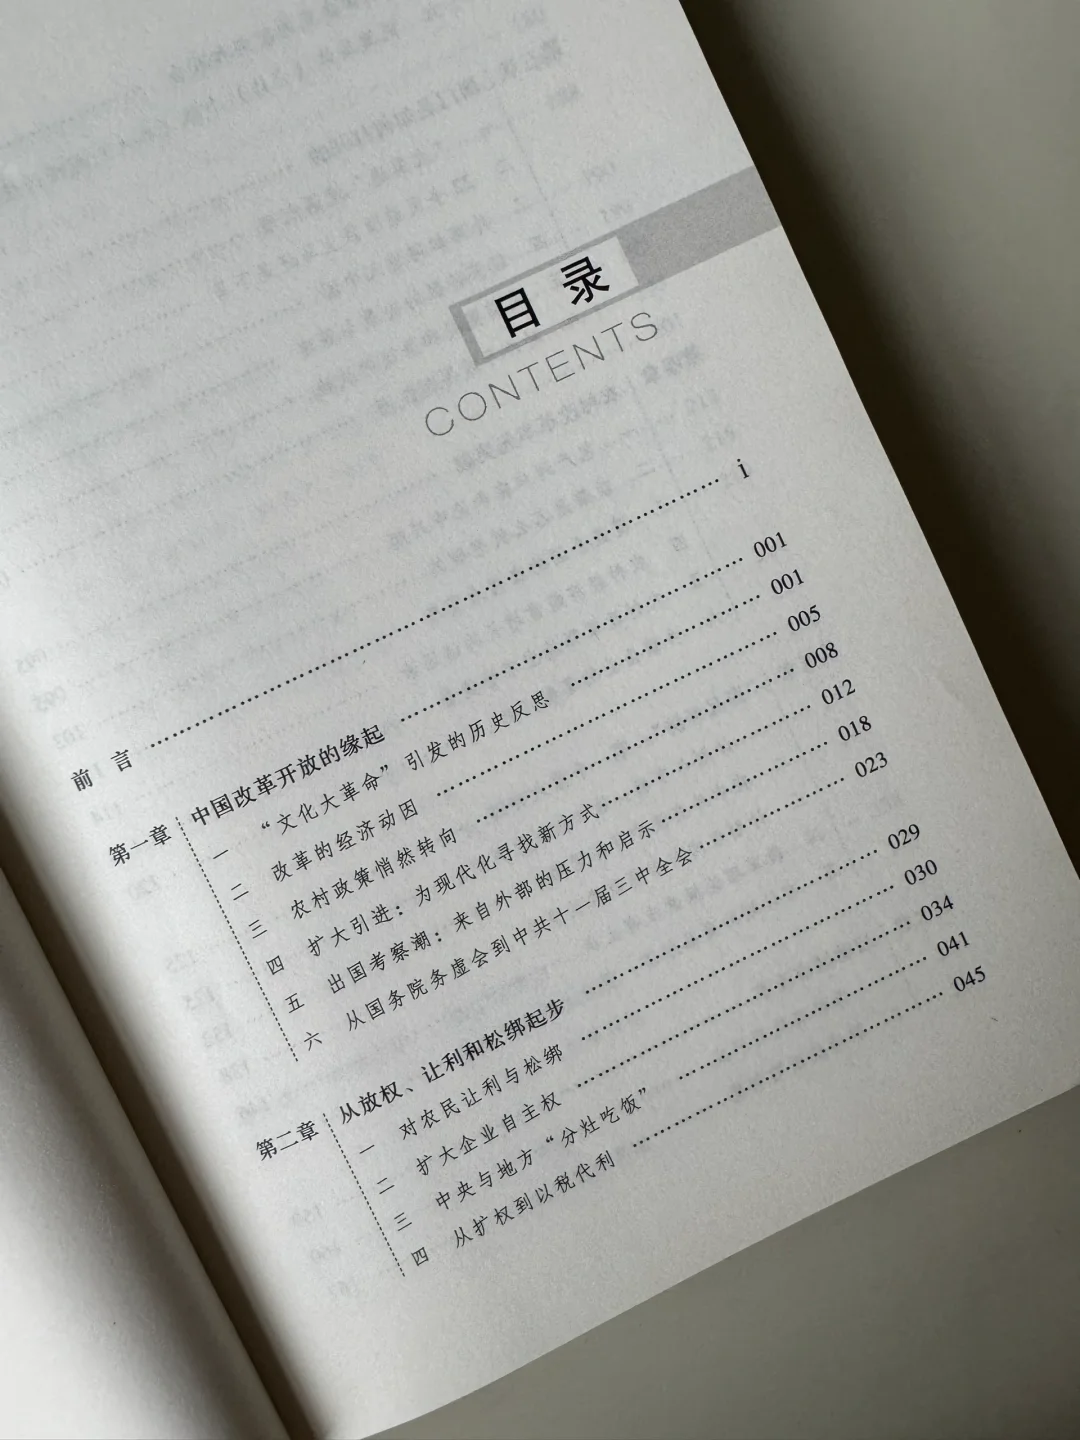 目 录
CONTENTS
前 言 …… i
第一章 中国改革开放的缘起 …… 001
一 “文化大革命”引发的历史反思 …… 001
二 改革的经济动因 …… 005
三 农村政策悄然转向 …… 008
四 扩大引进：为现代化寻找新方式 …… 012
五 出国考察潮：来自外部的压力和启示 …… 018
六 从国务院务虚会到中共十一届三中全会 …… 023
第二章 从放权、让利和松绑起步 …… 029
一 对农民让利与松绑 …… 030
二 扩大企业自主权 …… 034
三 中央与地方“分灶吃饭” …… 041
四 从扩权到以税代利 …… 045